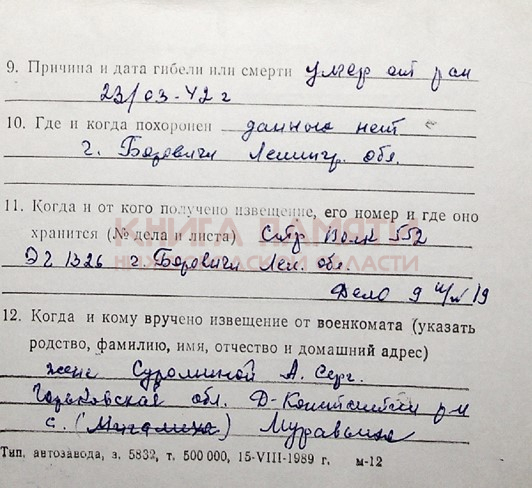 9. Причина и дата гибели или смерти умер от ран
23/03-42 г
10. Где и когда похоронен данных нет
г. Боровичи Ленингр. обл.
11. Когда и от кого получено извещение, его номер и где оно
хранится (№ дела и листа) Стр Полк 552
ЭГ 1326 г Боровичи Лен. обл.
Дело 9 19
12. Когда и кому вручено извещение от военкомата (указать
родство, фамилию, имя, отчество и домашний адрес)
жене А. Серг.
Горьковская обл. Д-Константин р-н
с. Муравьиха
Тип. автозавода, з. 5832, т. 500 000, 15-VIII-1989 г. м-12
КНИГА ПАМЯТИ
НИЖЕГОРОДСКОЙ ОБЛАСТИ